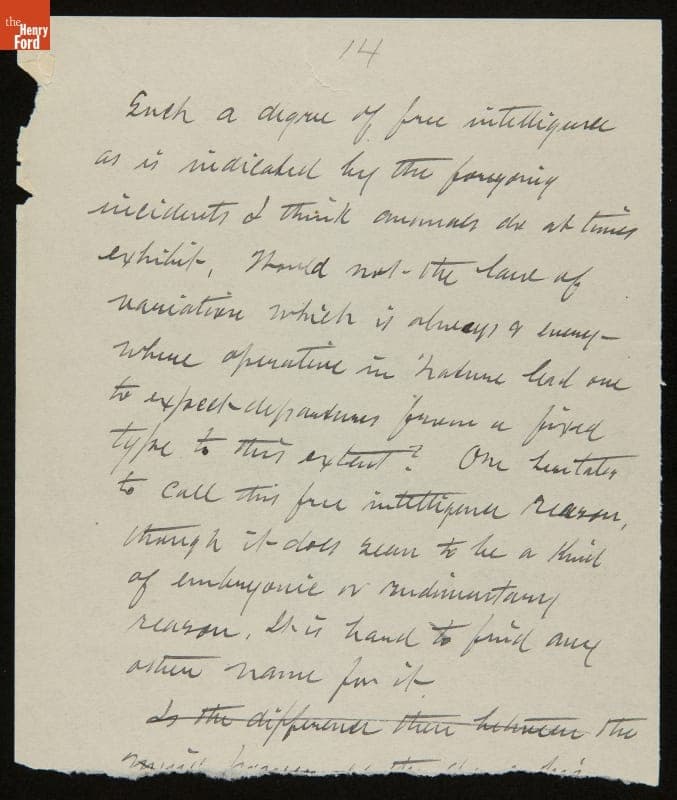 the
Henry
Ford
14
Such a degree of free intelligence
as is indicated by the foregoing
incidents I think animals do at times
exhibit. Would not the law of
variation which is always & every-
where operative in Nature lead one
to expect departures from a fixed
type to this extent? One hesitates
to call this free intelligence reason,
though it does seem to be a kind
of embryonic or rudimentary
reason. It is hard to find any
other name for it.
Is the difference then between the